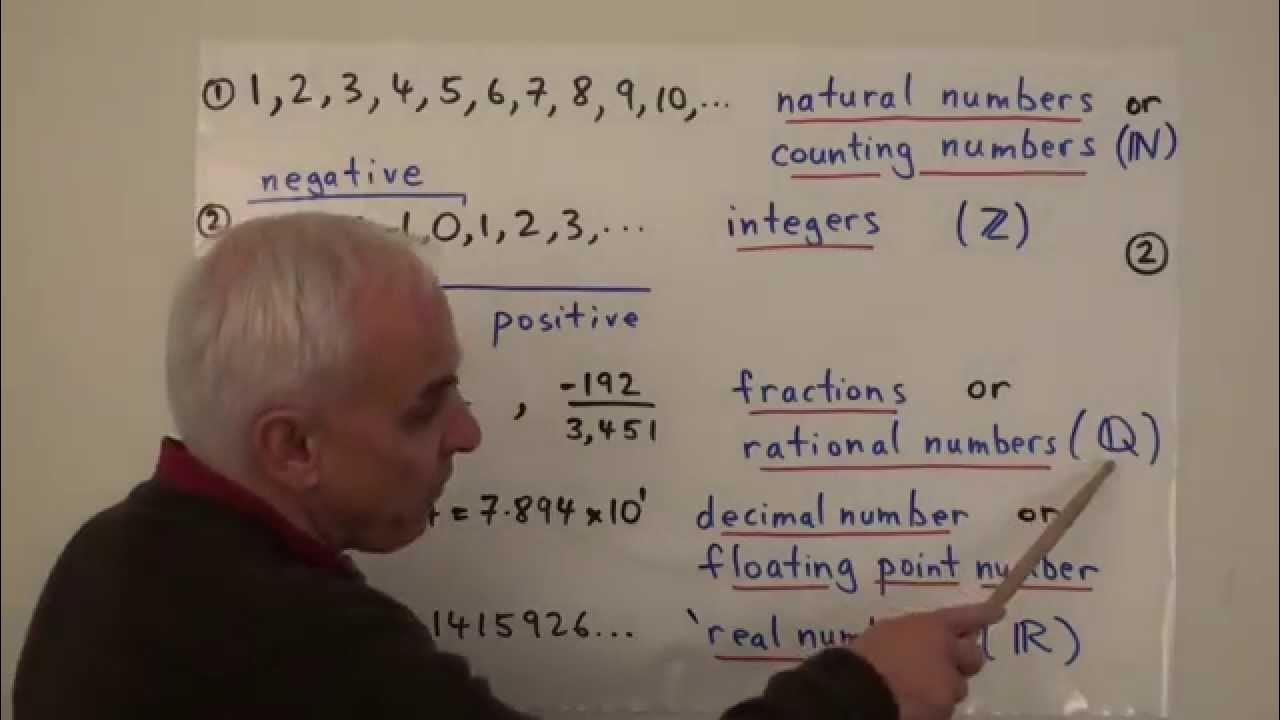 ① 1, 2, 3, 4, 5, 6, 7, 8, 9, 10, ... natural numbers or
counting numbers (ℕ)
negative
② -1, 0, 1, 2, 3, ... integers (ℤ)
②
positive
, -192/3,451 fractions or
rational numbers (ℚ)
= 7.894 × 10¹ decimal number or
floating point number
1415926... 'real (ℝ)